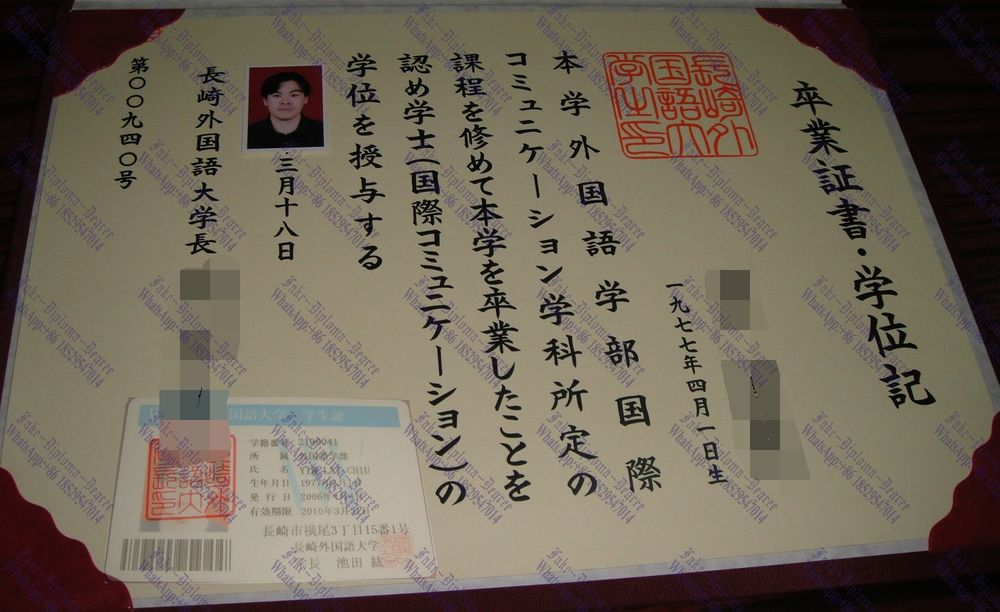 卒業証書・学位記
長崎外
国語大
学之印
一九七七年四月一日生
本学外国語学部国際
コミュニケーション学科所定の
課程を修めて本学を卒業したことを
認め学士(国際コミュニケーション)の
学位を授与する
三月十八日
長崎外国語大学長
第〇〇九四〇号
国語大学 学生証
学籍番号 2196041
所属 外国語学部
氏名 CHIU
生年月日
発行日 2006年
有効期限 2010年3月
長崎市横尾3丁目15番1号
長崎外国語大学
学長 池田 紘
Fake-Diploma-Degree
WhatsApp:+86 18529547014